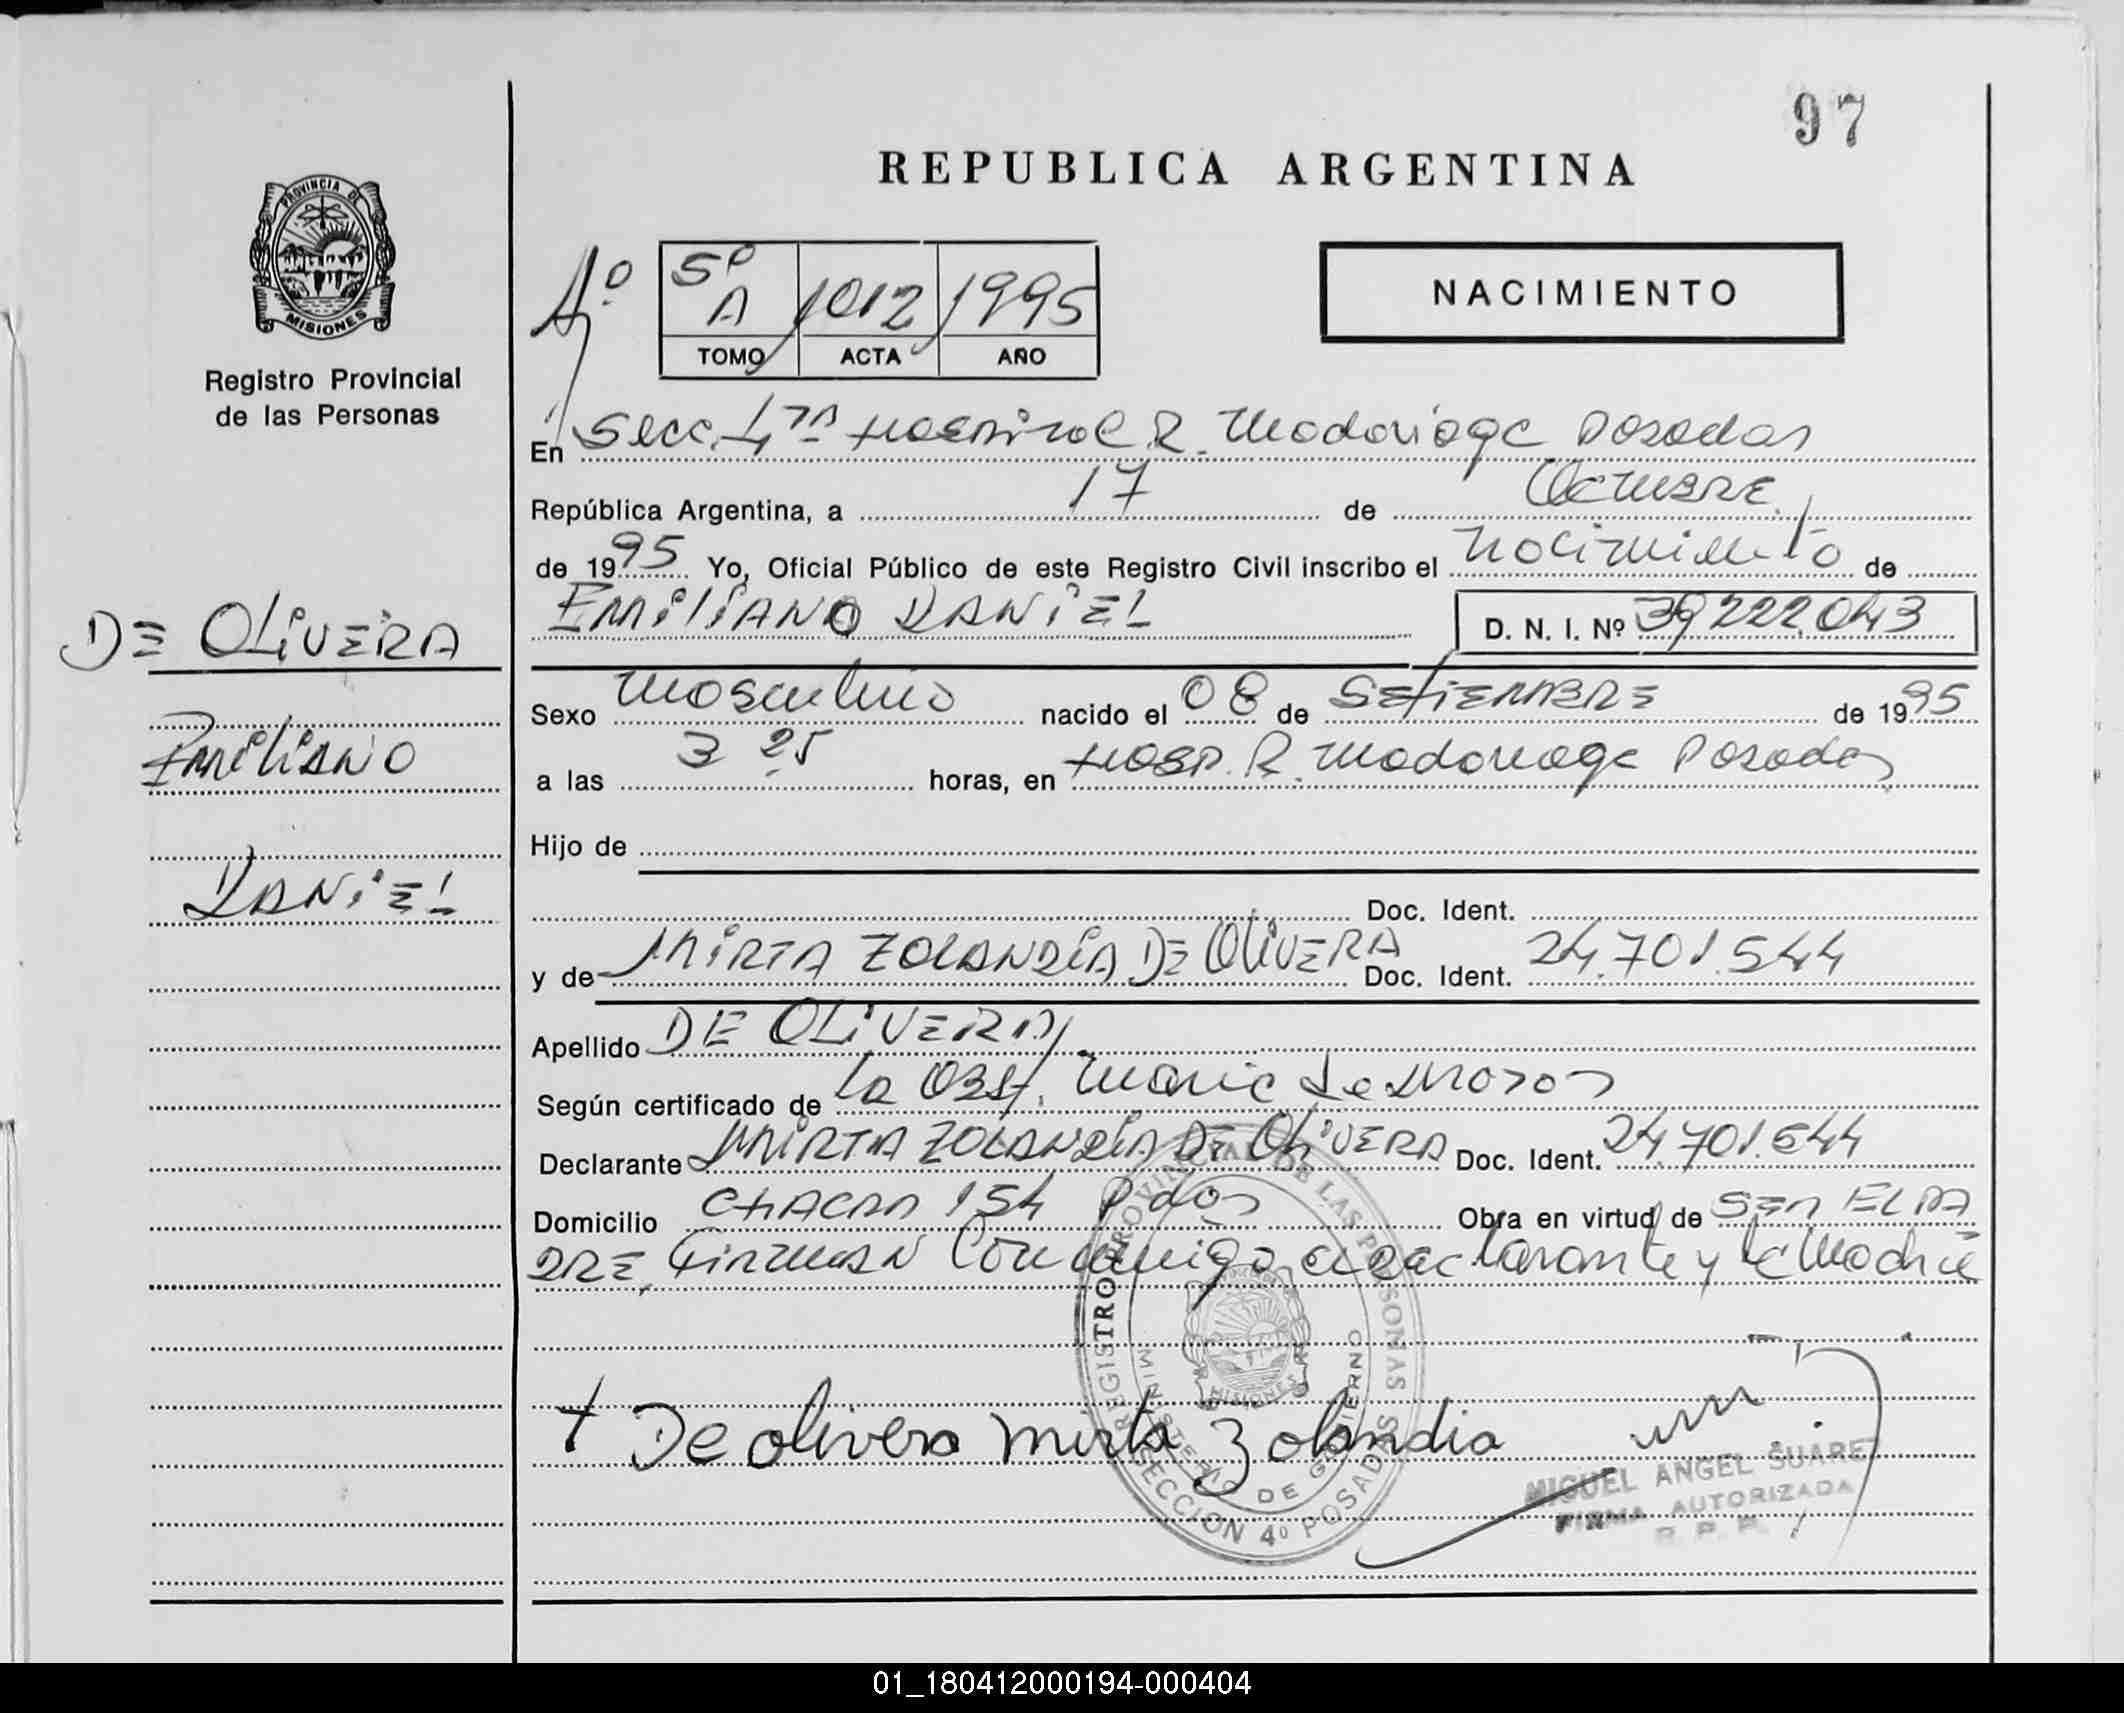 97
REPUBLICA ARGENTINA
PROVINCIA DE
MISIONES
Registro Provincial
de las Personas
5º
A 1012 1995
TOMO ACTA AÑO
NACIMIENTO
En Secc. 4ta Hospital R. Madariaga Posadas
República Argentina, a 17 de Octubre
de 1995 Yo, Oficial Público de este Registro Civil inscribo el Nacimiento de
EMILIANO DANIEL D. N. I. Nº 39222.043
DE OLIVERA
Sexo Masculino nacido el 08 de SETIEMBRE de 1995
EMILIANO
a las 3 25 horas, en HOSP. R. Madariaga Posadas
Hijo de
DANIEL
Doc. Ident.
y de MIRTA ZOLANDIA DE OLIVERA Doc. Ident. 24.701.544
Apellido DE OLIVERA
Según certificado de la Obst. Maria de
Declarante MIRTA ZOLANDIA DE OLIVERA Doc. Ident. 24.701.544
Domicilio CHACRA 154 Pdas Obra en virtud de SER EL PA
DRE, FIRMAN Conmigo el declarante y la Madre
REGISTRO PROVINCIAL DE LAS PERSONAS
MINISTERIO DE GOBIERNO
MISIONES
SECCION 4º POSADAS
+ De olivera mirta Zolandia
MIGUEL ANGEL SUARE
FIRMA AUTORIZADA
R. P. P.
01_180412000194-000404